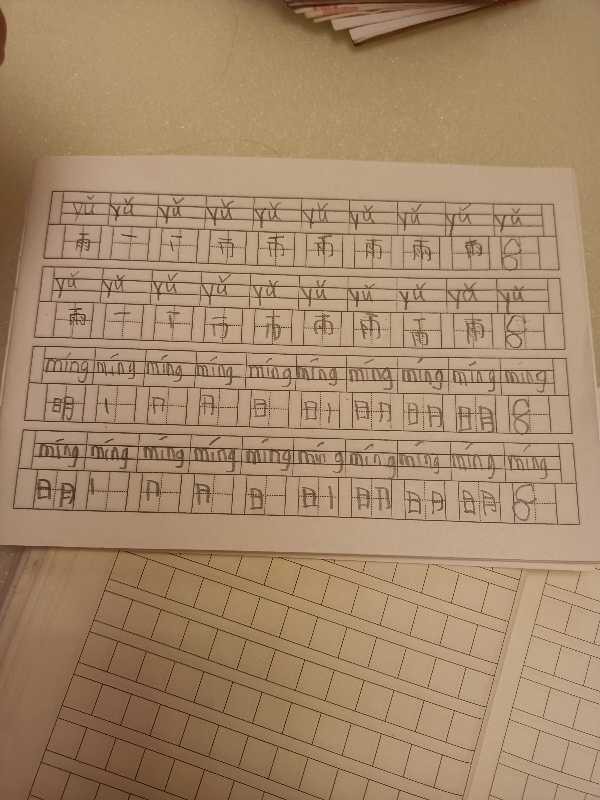 yǔ yǔ yǔ yǔ yǔ yǔ yǔ yǔ yǔ yǔ
雨 雨 雨 雨 雨 8
yǔ yǔ yǔ yǔ yǔ yǔ yǔ yǔ yǔ yǔ
雨 雨 雨 雨 雨 8
míng míng míng míng míng míng míng míng míng míng
明 丨 冂 日 日丨 明 明 8
míng míng míng míng míng míng míng míng míng míng
明 丨 冂 日 日丨 明 明 8